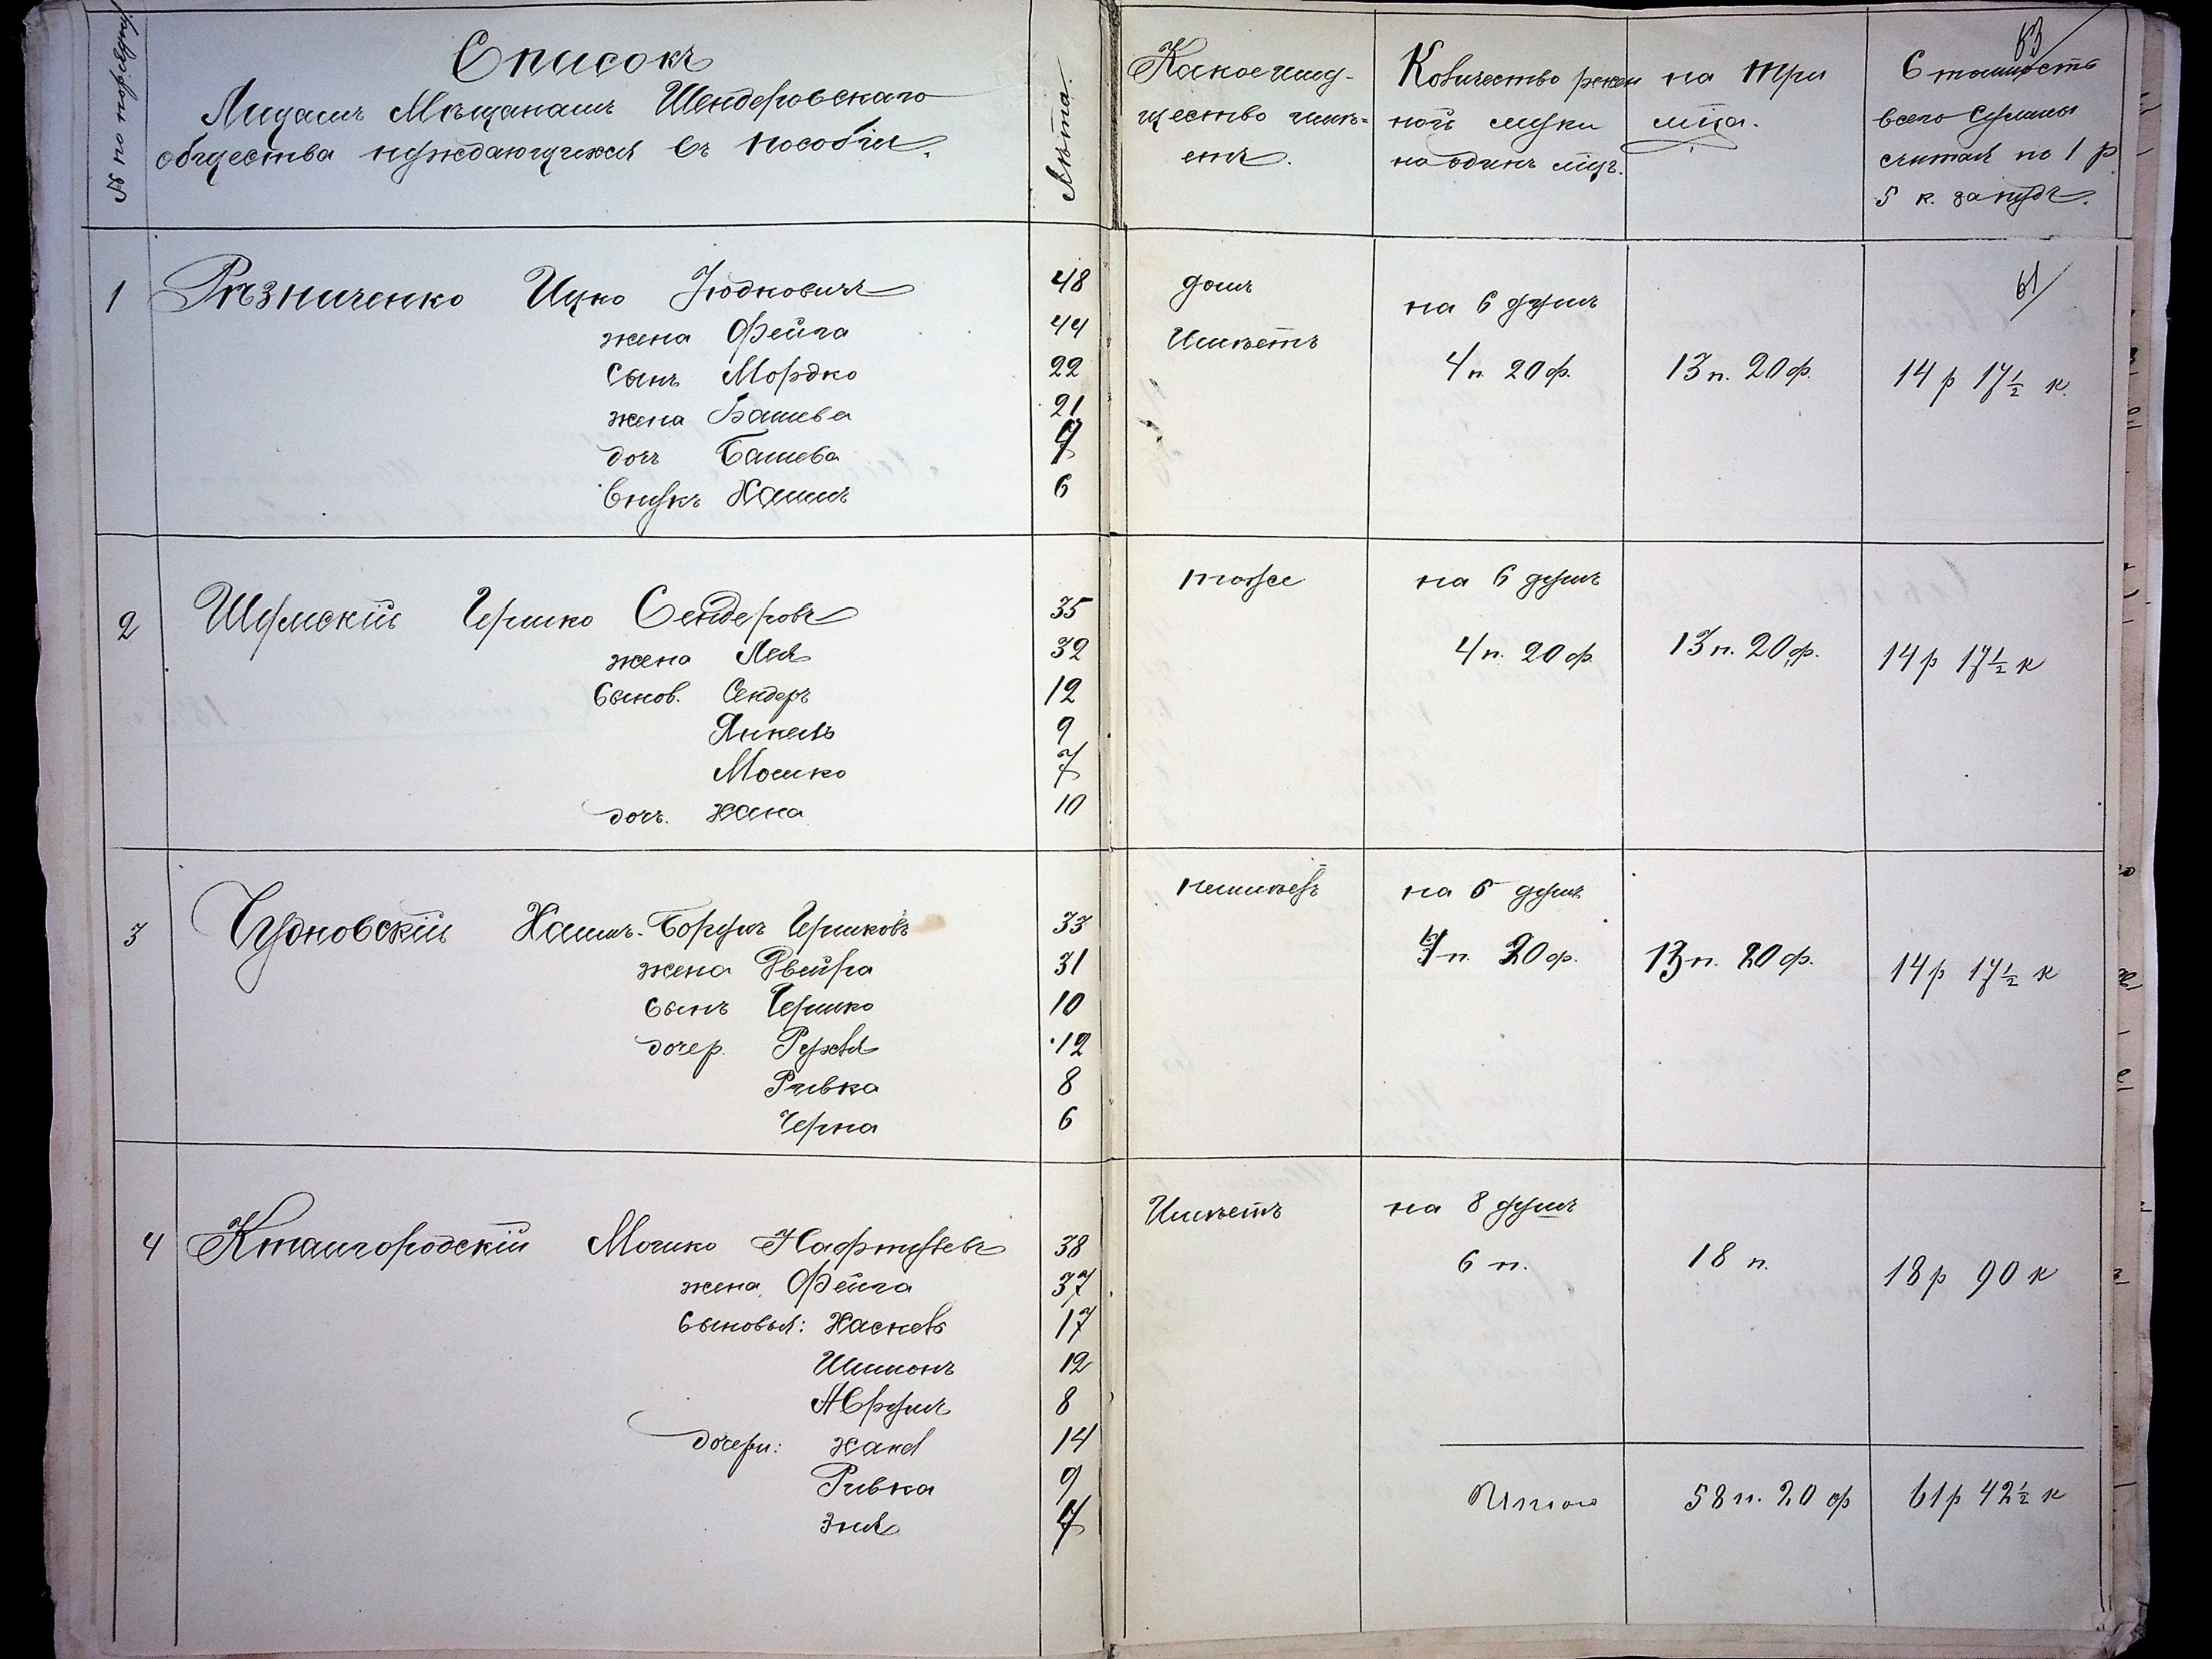 № по порядку
Списокъ
Лицамъ Мѣщанамъ Шендеровскаго
общества нуждающихся въ пособіи.
Лѣта.
Какое иму-
щество имѣ-
етъ.
Количество ржан
ной муки
на одинъ мцъ.
на три
мца.
53
Стоимость
всего Суммы
считая по 1 р
5 к. за пудъ.
61
1 Рѣзниченко Ицко Іюдковичъ 48 домъ на 6 душъ
жена Фейга 44 Имѣетъ
сынъ Мордко 22 4 п. 20 ф. 13 п. 20 ф. 14 р 17 ½ к.
жена Башева 21
доч Башева 7
внукъ Хаимъ 6
2 Шумскій Гершко Сендеровъ 35 тоже на 6 душъ
жена Лея 32 4 п. 20 ф. 13 п. 20 ф. 14 р 17 ½ к
Сынов. Сендеръ 12
Янкель 9
Мошко 7
доч. Хана 10
3 Чудновскій Хаимъ-Борухъ Гершковъ 33 на 6 душъ
жена Двейра 31 4 п. 20 ф. 13 п. 20 ф. 14 р 17 ½ к
сынъ Гершко 10
дочер. Рухля 12
Ривка 8
Черна 6
4 Китайгородскій Мошко Нафтулевъ 38 Имѣетъ на 8 душъ
жена Фейга 37 6 п. 18 п. 18 р 90 к
Сыновья: Хаскель 17
Шимонъ 12
8
дочери: Ханя 14
Ривка 9
7
Итого 58 п. 20 ф 61 р 42 ½ к